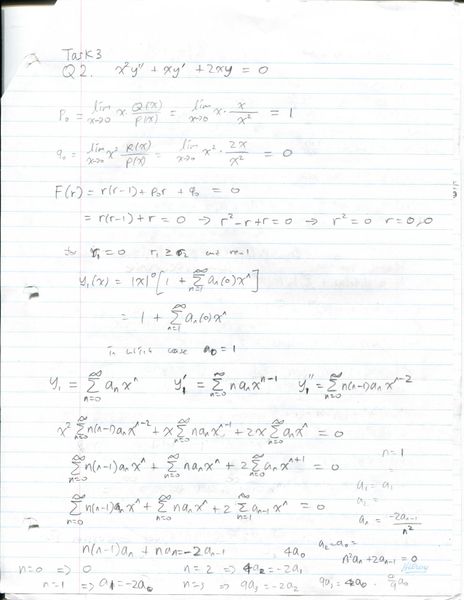 Task 3
Q2. x²y'' + xy' + 2xy = 0
p₀ = lim x→0 x · Q(x)/P(x) = lim x→0 x · x/x² = 1
q₀ = lim x→0 x² R(x)/P(x) = lim x→0 x² · 2x/x² = 0
F(r) = r(r-1) + p₀r + q₀ = 0
= r(r-1) + r = 0 → r² - r + r = 0 → r² = 0 r = 0,0
for r₁ = 0 r₁ ≥ r₂
y₁(x) = |x|⁰ [1 + ∑ n=1 ∞ aₙ(0)xⁿ]
= 1 + ∑ n=1 ∞ aₙ(0)xⁿ
In which case a₀ = 1
y₁ = ∑ n=0 ∞ aₙxⁿ y₁' = ∑ n=0 ∞ naₙxⁿ⁻¹ y₁'' = ∑ n=0 ∞ n(n-1)aₙxⁿ⁻²
x² ∑ n=0 ∞ n(n-1)aₙxⁿ⁻² + x ∑ n=0 ∞ naₙxⁿ⁻¹ + 2x ∑ n=0 ∞ aₙxⁿ = 0
∑ n=0 ∞ n(n-1)aₙxⁿ + ∑ n=0 ∞ naₙxⁿ + 2 ∑ n=0 ∞ aₙxⁿ⁺¹ = 0
n=1
=
a₁ = a₁
a₂ =
∑ n=0 ∞ n(n-1)aₙxⁿ + ∑ n=0 ∞ naₙxⁿ + 2 ∑ n=1 ∞ aₙ₋₁xⁿ = 0
aₙ = -2aₙ₋₁/n²
n(n-1)aₙ + naₙ = -2aₙ₋₁ 4a₀ a₂ = a₀ =
n²aₙ + 2aₙ₋₁ = 0
n=0 ⇒ 0 n=2 ⇒ 4a₂ = -2a₁
n=1 ⇒ a₁ = -2a₀ n=3 9a₃ = -2a₂ 9a₃ = 4a₀